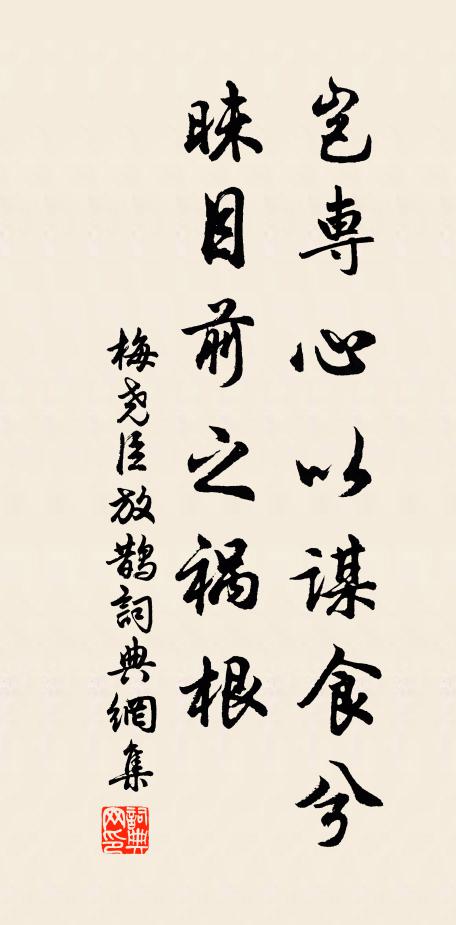 岂専心以谋食兮
昧目前之祸根
梅尧臣放鹊詞典網集
詞典网印